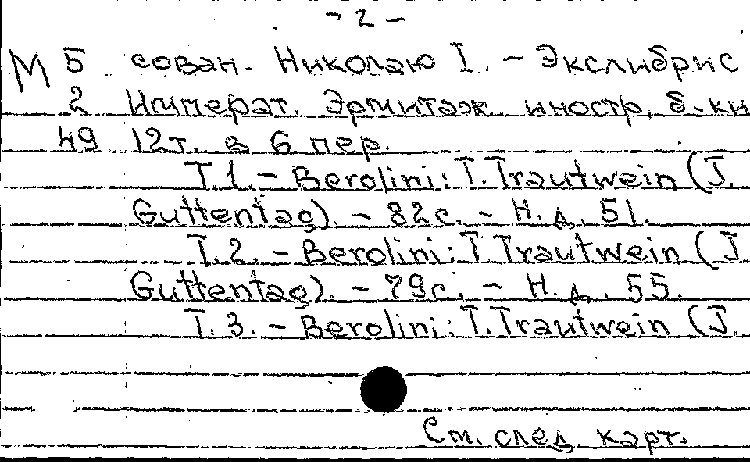 - 2 -
М 5 сован. Николаю I. - Экслибрис
2 Императ. Эрмитаж. иностр. б-ки
49 12т. в 6 пер.
Т.1. - Berolini: T. Trautwein (J.
Guttentag). - 82с. - Н.д. 51.
Т.2. - Berolini: T Trautwein (J.
Guttentag). - 79с. - Н.д. 55.
Т.3. - Berolini: T. Trautwein (J.
См. след. карт.